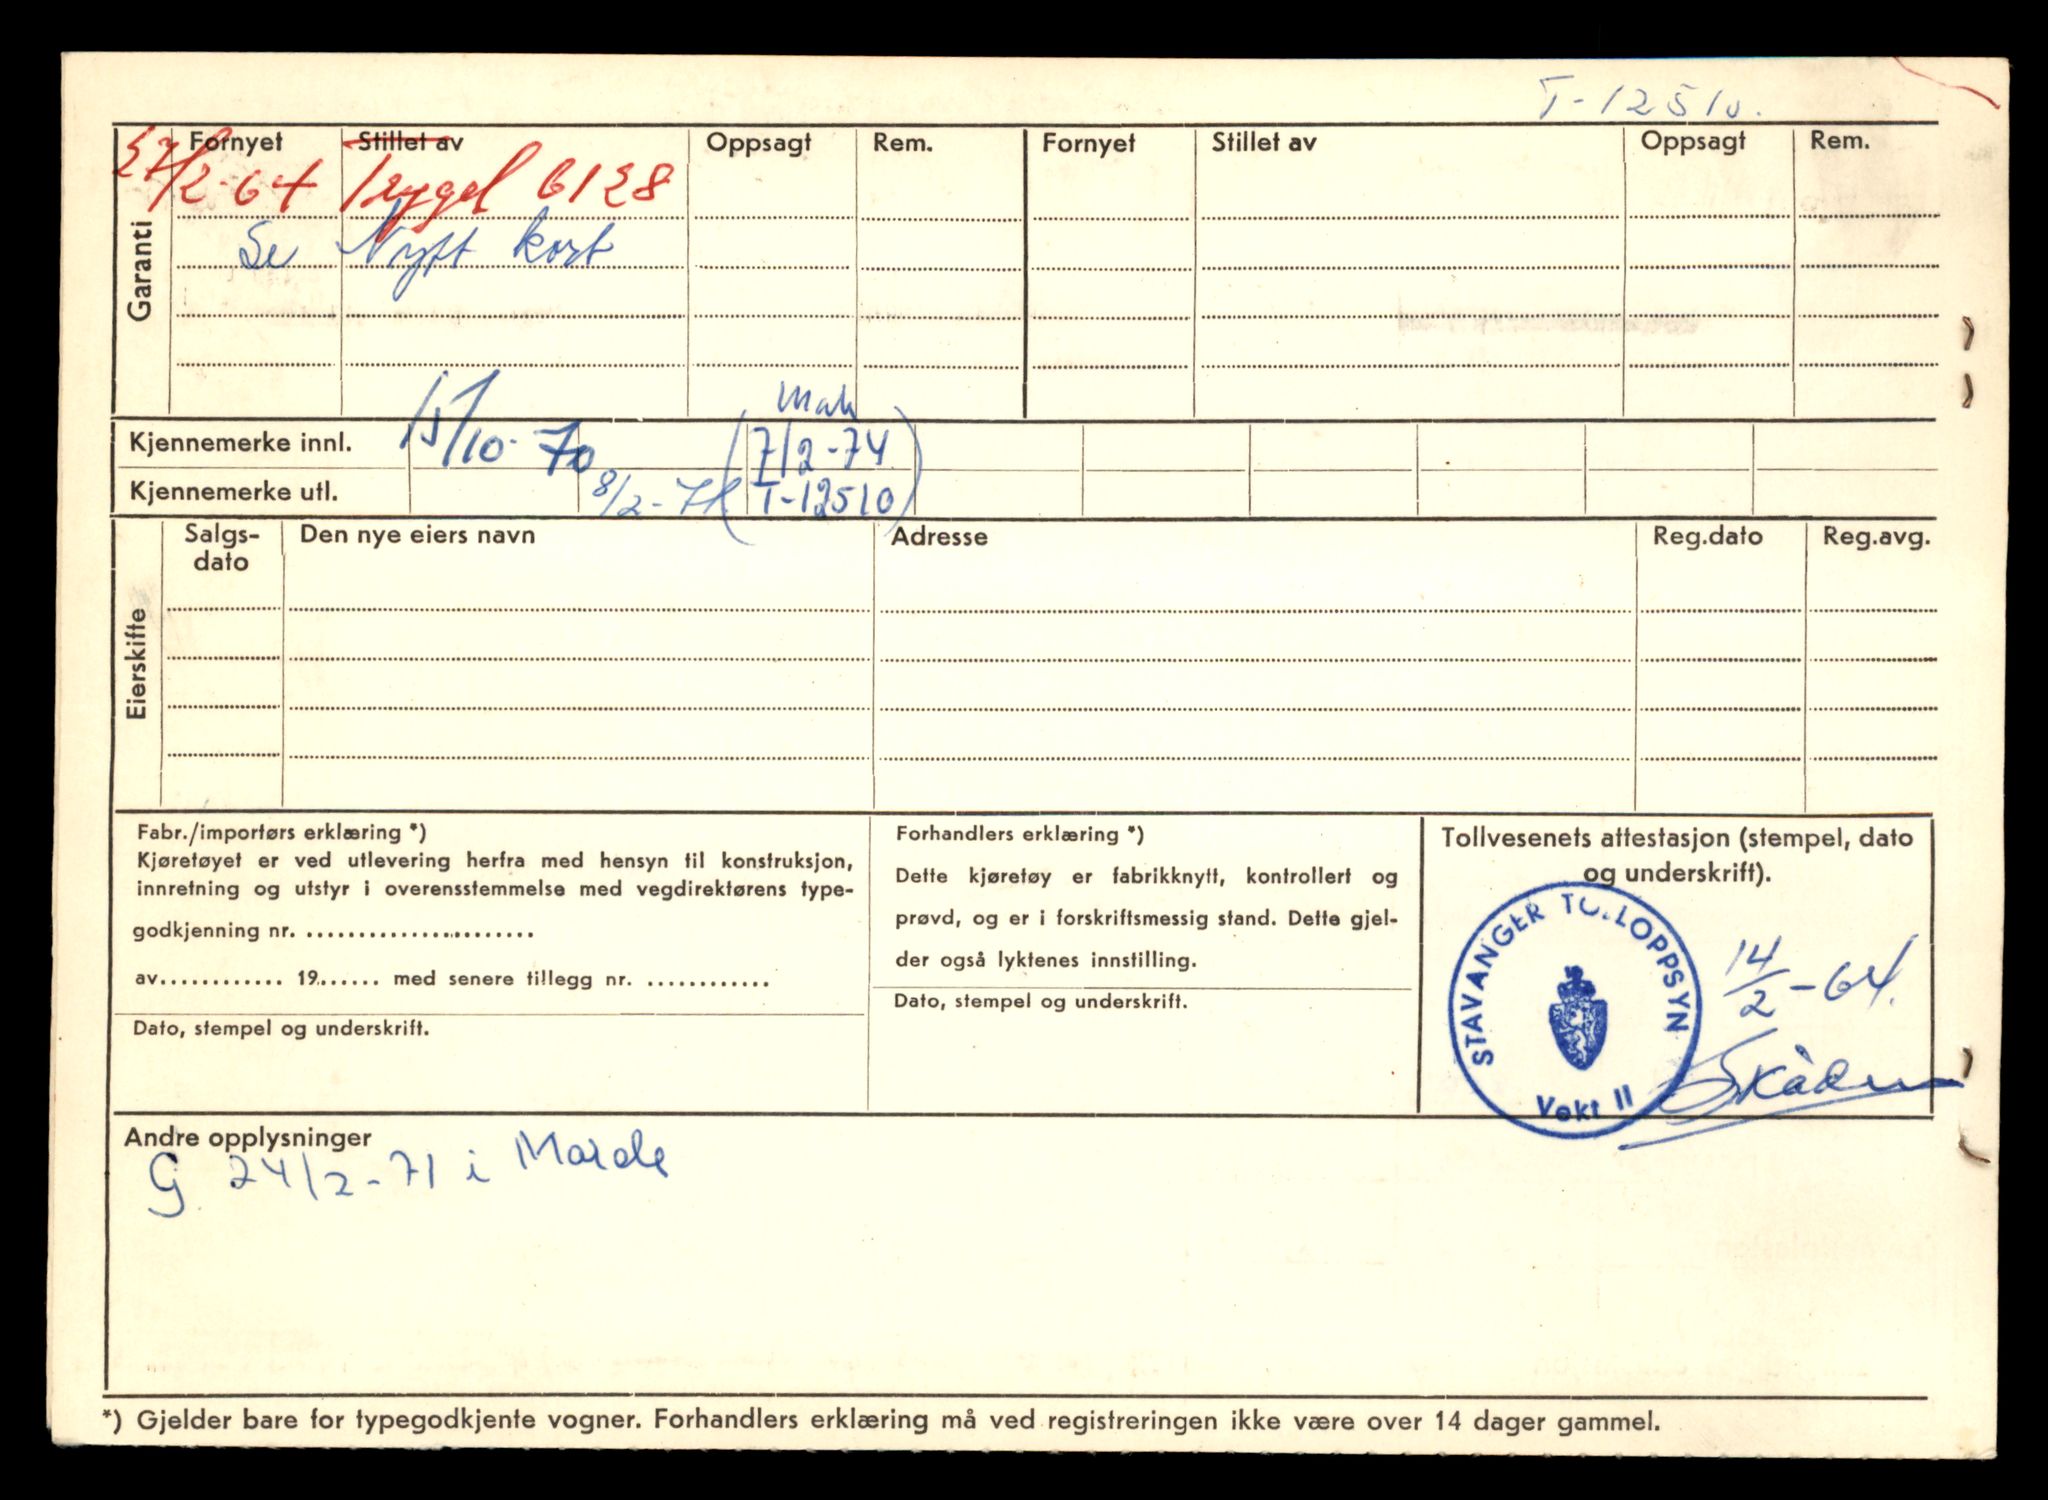 T-12510.
Garanti
Fornyet Stillet av Oppsagt Rem. Fornyet Stillet av Oppsagt Rem.
27/2-64 Trygd 6128
Se Nytt kort
Mah
Kjennemerke innl. 15/10-70 7/2-74
Kjennemerke utl. 8/2-71 T-12510
Eierskifte
Salgs-dato Den nye eiers navn Adresse Reg.dato Reg.avg.
Fabr./importørs erklæring *)
Kjøretøyet er ved utlevering herfra med hensyn til konstruksjon,
innretning og utstyr i overensstemmelse med vegdirektørens type-
godkjenning nr. ......................
av............ 19...... med senere tillegg nr. ............
Dato, stempel og underskrift.
Forhandlers erklæring *)
Dette kjøretøy er fabrikknytt, kontrollert og
prøvd, og er i forskriftsmessig stand. Dette gjel-
der også lyktenes innstilling.
Dato, stempel og underskrift.
Tollvesenets attestasjon (stempel, dato
og underskrift).
STAVANGER TOLLOPPSYN
Vekt II
14/2-64.
Andre opplysninger
G 24/2-71 i
*) Gjelder bare for typegodkjente vogner. Forhandlers erklæring må ved registreringen ikke være over 14 dager gammel.